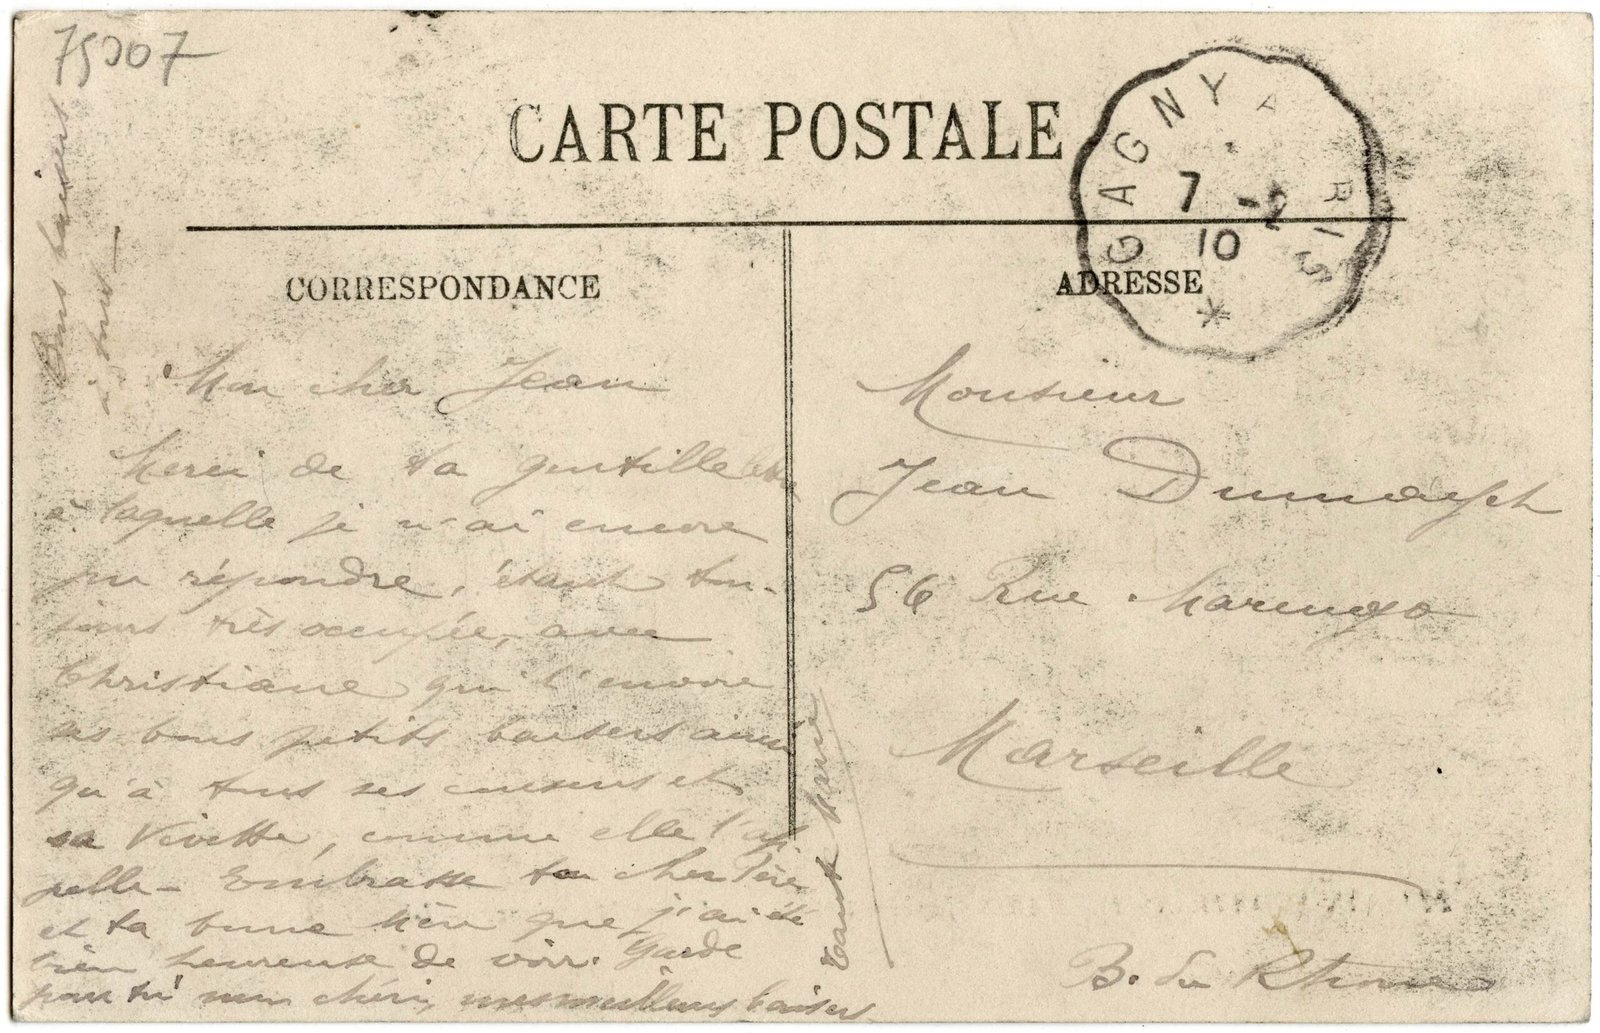 75007
CARTE POSTALE
GAGNY A PARIS
7 -2
10
CORRESPONDANCE
ADRESSE
Mon cher Jean
Merci de ta gentille lettre
à laquelle je n'ai encore
pu répondre, étant tou-
jours très occupée, avec
Christiane qui t'envoie
ses bons petits baisers ainsi
qu'à tous ses cousins et
sa Vivette, comme elle l'ap
pelle - Embrasse ton cher Père
et ta bonne Mère que j'ai été
bien heureuse de voir. Garde
pour toi mon chéri, mes meilleurs baisers
Tante Marie
Bons baisers
à tous -
Monsieur
Jean
56 Rue Marengo
Marseille
B. du Rhône